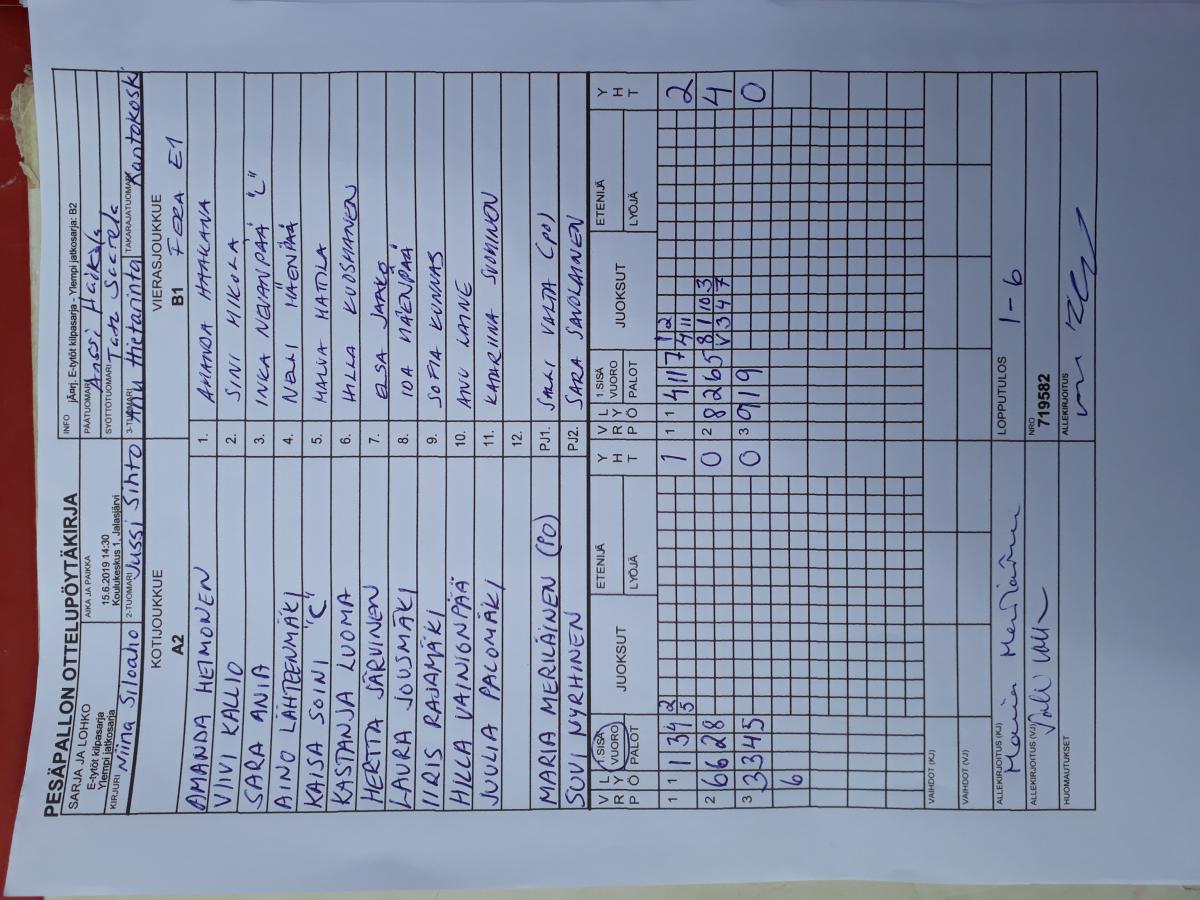 PESÄPALLON OTTELUPÖYTÄKIRJA
SARJA JA LOHKO
E-tytöt kilpasarja
Ylempi jatkosarja
AIKA JA PAIKKA
15.6.2019 14:30
Koulukeskus 1, Jalasjärvi
INFO
jÃ¤rj. E-tytöt kilpasarja - Ylempi jatkosarja: B2
PÄÄTUOMARI Anssi
SYÖTTÖTUOMARI Tatu Saarela
KIRJURI Niina Siloaho 2-TUOMARI Jussi Sihto 3-TUOMARI Anu Hietaranta TAKARAJATUOMARI Rantakoski
KOTIJOUKKUE VIERASJOUKKUE
A2 B1
AMANDA HEIMONEN 1. AMANDA HAAKANA
VIIVI KALLIO 2. SINI MIKOLA
SARA ANIA 3. INKA NEVANPÄÄ "C"
AINO LÄHTEENMÄKI 4. NELLI MÄENPÄÄ
KAISA SOINI "C" 5. MALVA MATILA
KASTANJA LUOMA 6. HILLA KUOSMANEN
HERTTA JÄRVINEN 7. ELSA
LAURA JOUSMÄKI 8. IDA MÄENPÄÄ
IIRIS RAJAMÄKI 9. SOFIA KUNNAS
HILLA VAINIONPÄÄ 10. ANU LAINE
JUULIA PALOMÄKI 11. KATARIINA SUOMINEN
12.
MARIA MERILÄINEN (PO) PJ1. VALTA (PO)
SUVI NYRHINEN PJ2. SARA SAVOLAINEN
V L 1.SISÄ JUOKSUT ETENIJÄ Y V L 1.SISÄ JUOKSUT ETENIJÄ Y
R Y VUORO H R Y VUORO H
P Ö PALOT LYÖJÄ T P Ö PALOT LYÖJÄ T
1 1 1 3 4 2 5 1 1 1 4 11 7 1 2 4 11 2
2 6 6 2 8 0 2 8 2 6 5 8 1 10 3 V 3 4 7 4
3 3 3 4 5 0 3 9 11 9 0
6
VAIHDOT (KJ)
VAIHDOT (VJ)
ALLEKIRJOITUS (KJ) Maria Meriläinen LOPPUTULOS 1 - 6
ALLEKIRJOITUS (VJ) NRO
719582
HUOMAUTUKSET ALLEKIRJOITUS